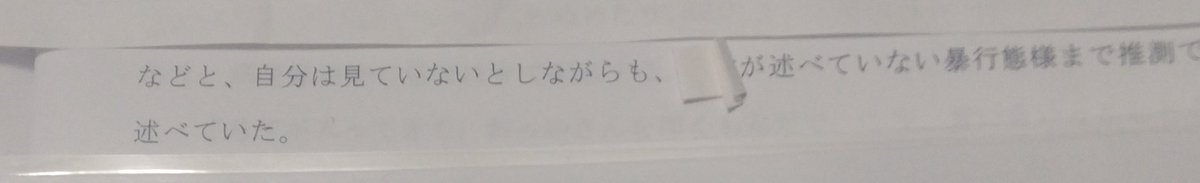 などと、自分は見ていないとしながらも、が述べていない暴行態様まで推測で
述べていた。